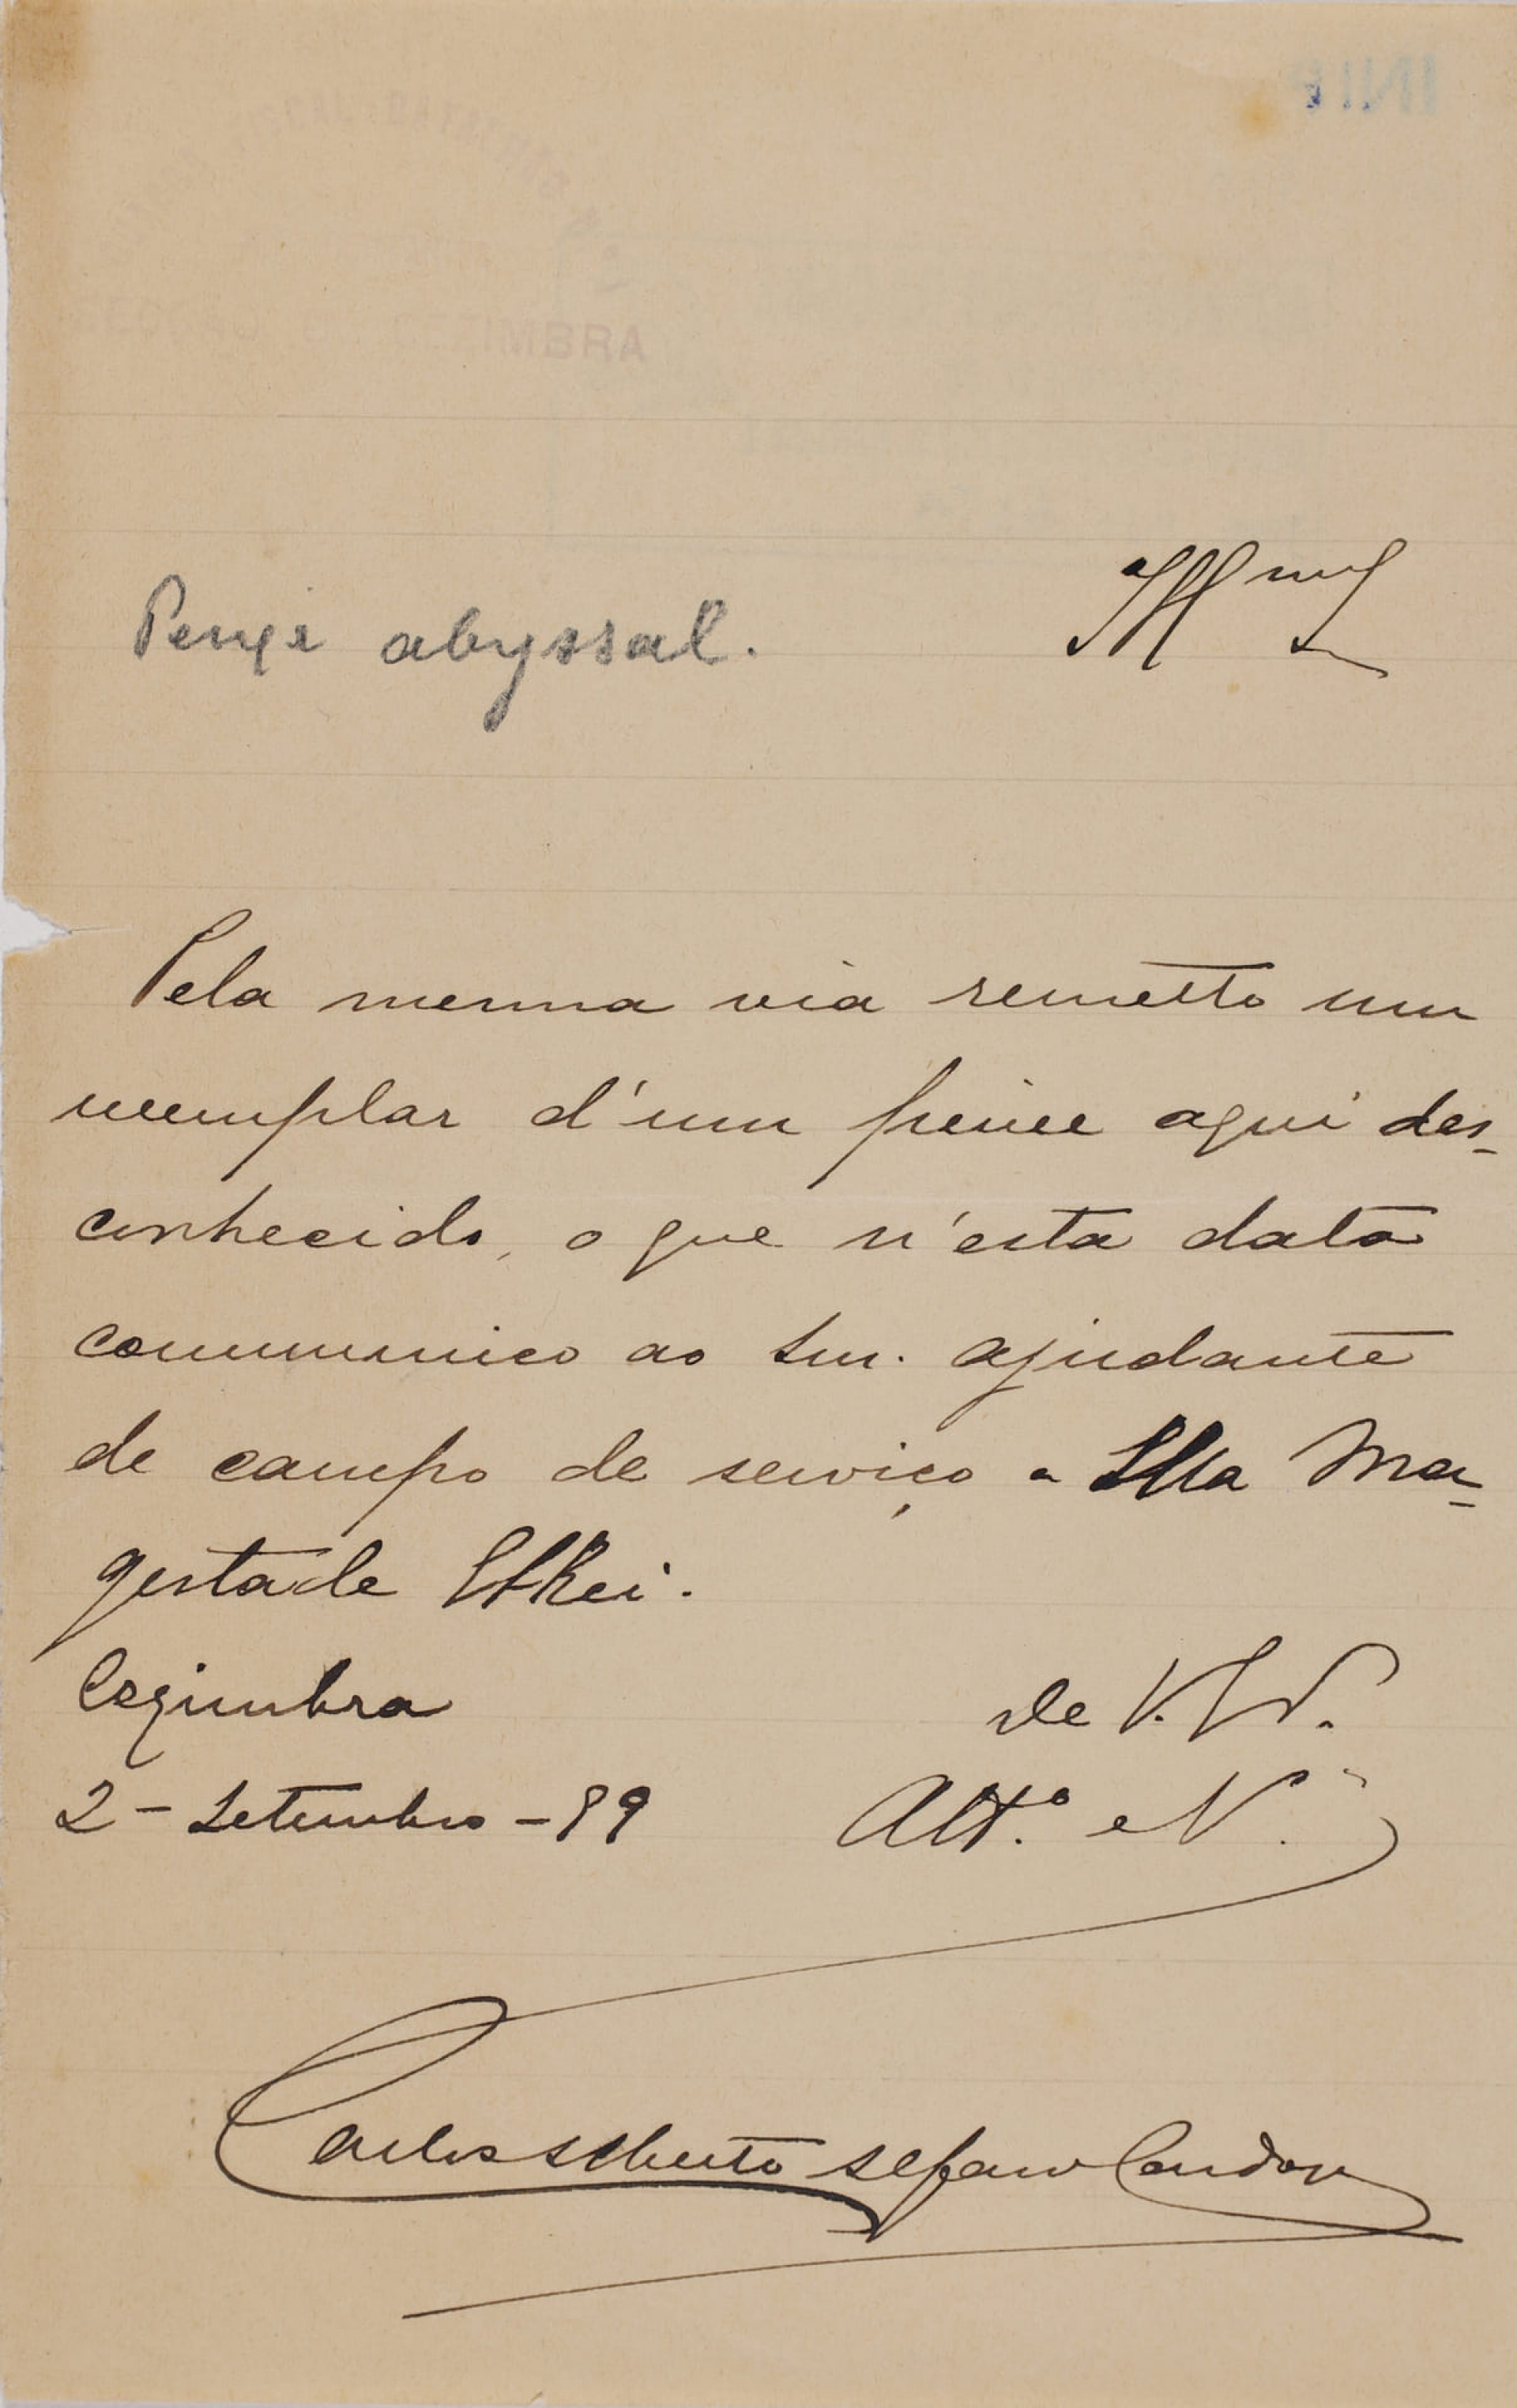 SECÇÃO DE CEZIMBRA
Peixe abyssal.
Pela mesma via remetto um
exemplar d'um peixe aqui des-
conhecido, o que n'esta data
communico ao Snr. ajudante
de campo de serviço a Sua Ma-
gestade El-Rei.
Cezimbra
2 - Setembro - 99
de V.
Att.º e V.
Carlos Alberto